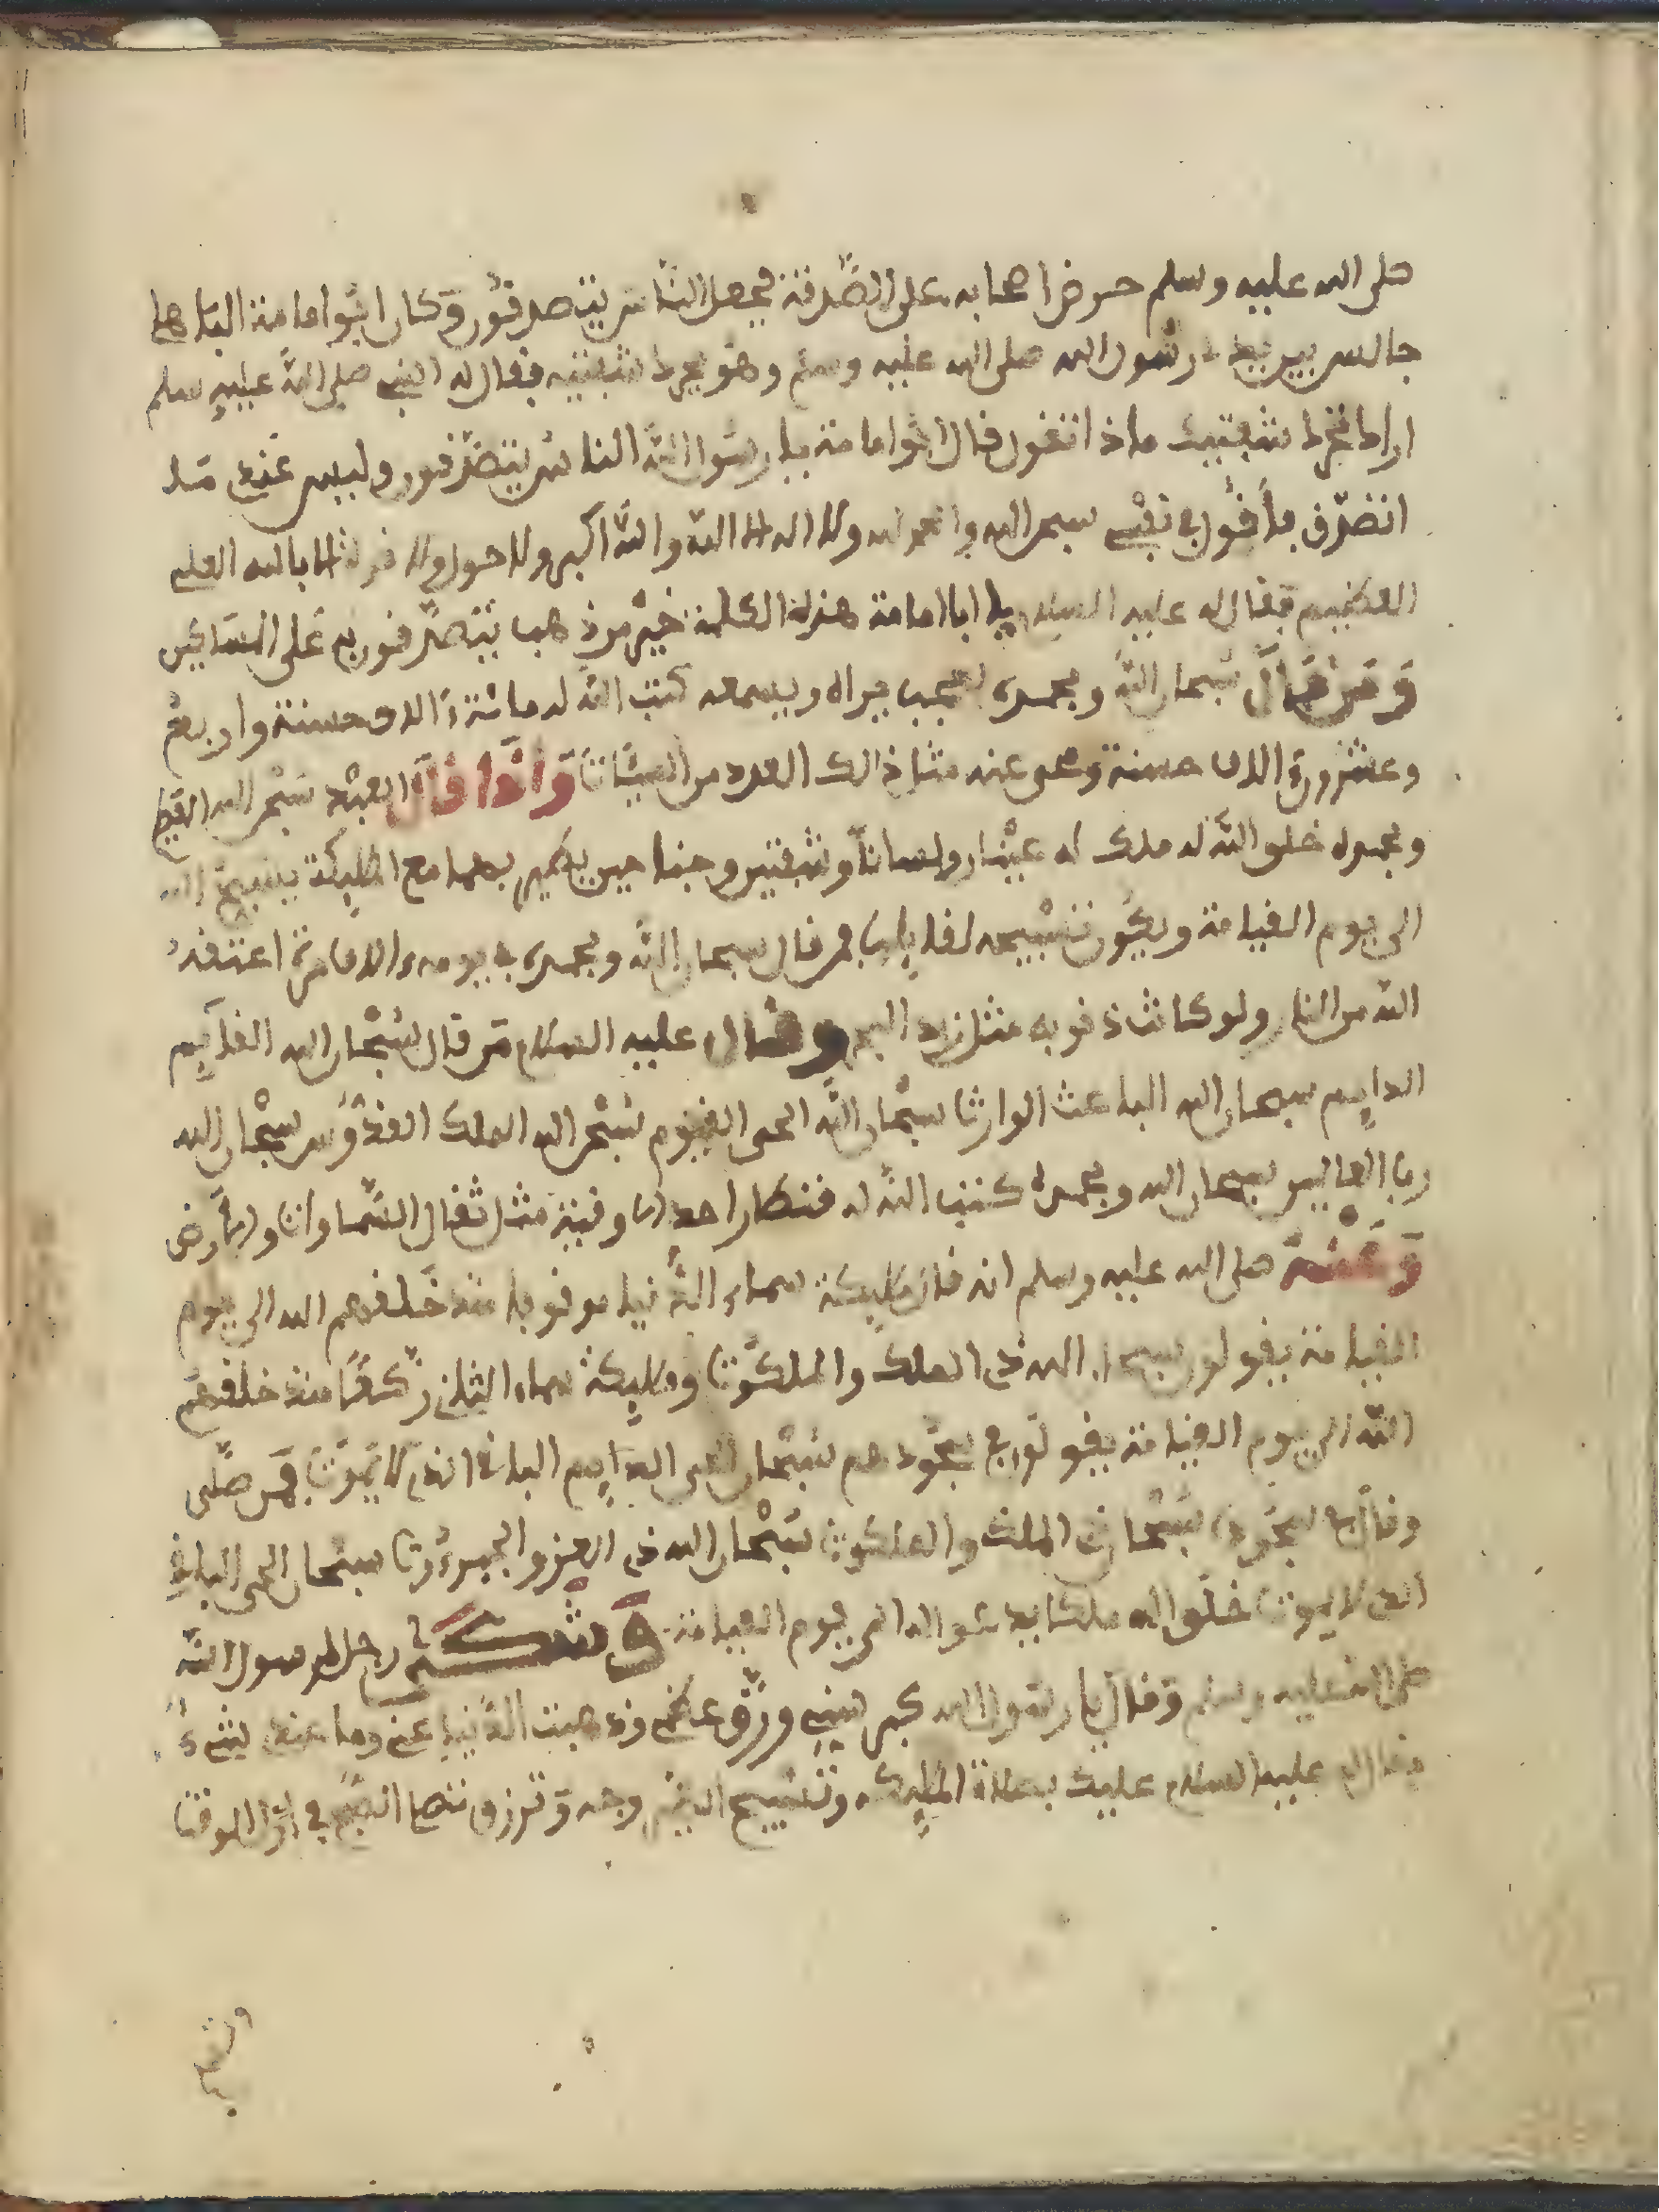 صلى الله عليه وسلم حرض اصحابه على الصّدقة فجعل النّاس يتصدقون وكان ابُوا مامة الباهل
جالس بين يد رسُول الله صلى الله عليه وسلم وهو يحرك شفتيه فقال له النبي صلى اللّه عليه سلم
اراك تحرك شفتيك ماذا تقول قال ابُوا مامة يا رسُوا اللّه الناس يتصدّقون وليس عندى ما
اتصدّق به أقُول في نفسى سبحن الله والحمد لله ولا اله الا اللّه واللّه اكبر ولا حول ولا قوة الا بالله العلى
العظيم فقال له عليه السلام يا ابا امامة هذه الكلمة خيْر من ذهب تتصدّقون به على المساكين
وَمَن قَالَ سُبحان اللّه وبحمده كتب اللّه له مائة ءالاف حسنة واربعْ
وعشرون ءالاف حسنة ومحى عنه مثل ذالك العدد من السيّئات وَاذَا قَالَ العبْد سُبْحن الله العظيم
وبحمده خلق اللّه له ملك له عيْنان ولساناً وشفتين وجناحين يطير بهما مع المليكة يسبح الله
الى يوم القيامة ويكُون تسْبيحه لقايلها فمن قال سبحان اللّه وبحمده في يومه ءالاف مرة اعتقه
اللّه من النار ولو كانت ذنوبه مثل زبد البحر وقال عليه السلام مَن قال سُبْحان الله القايم
الدايم سبحان الله الباعث الوارث سبْحان اللّه الحى القيّوم سُبْحن الله الملك القدّوس سبْحان الله
رب العالمين سبحان الله وبحمده كتب اللّه له قنطارا وقية مثل ثقال السّماوات والأرض
وَعَنْهُ صلى الله عليه وسلم انه قال مليكة سماء الدُّنيا وقوفا منذ خَلقهم الله الى يوم
القيامة يقولون سبحان الله ذى الملك والملكُوت ومليكة سماء الثانى ركّعًا منذ خلقهم
اللّه الى يوم القيامة يقولون في سجُودهم سُبْحان الحى الدايم الباقى الذى لا يمُوت فمَن صَلَّى
وقال في سجُوده سُبْحان ذى الملك والملكُوت سُبْحان الله ذى العز والجبرُوت سبْحان الحى الباقى
الذى لا يموت خلَق الله ملكا يدعُوا له الى يوم القيامة وَشَكَى رجل لرسول اللّه
صلى الله عليه وسلم وَقال يا رسُول الله كبر سنى ورَقّ عظمى وذهبت الدّنيا عنى وما عندى شىءٌ
وقال له عليه السلام عليك بصلاة المليكه وتسْبيح وجه وَترزق تصل الصّبح في اوّل الوقت